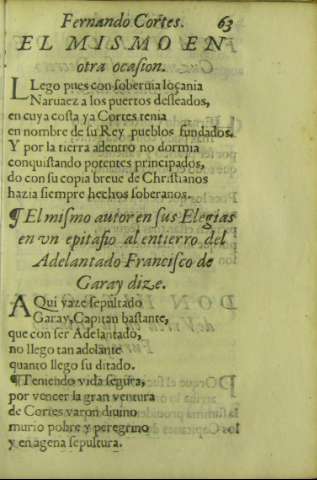 Fernando Cortes. 63
EL MISMO EN
otra ocasion.
LLego pues con soberuia loçania
Naruaez a los puertos desseados,
en cuya costa ya Cortes tenia
en nombre de su Rey pueblos fundados.
Y por la tierra adentro no dormia
conquistando potentes principados,
do con su copia breue de Christianos
hazia siempre hechos soberanos.
¶El mismo autor en sus Elegias
en vn epitafio al entierro del
Adelantado Francisco de
Garay dize.
AQui yaze sepultado
Garay, Capitan bastante,
que con ser Adelantado,
no llego tan adelante
quanto llego su ditado.
¶Teniendo vida segura,
por vencer la gran ventura
de Cortes varon diuino
murio pobre y peregrino
y en agena sepultura.